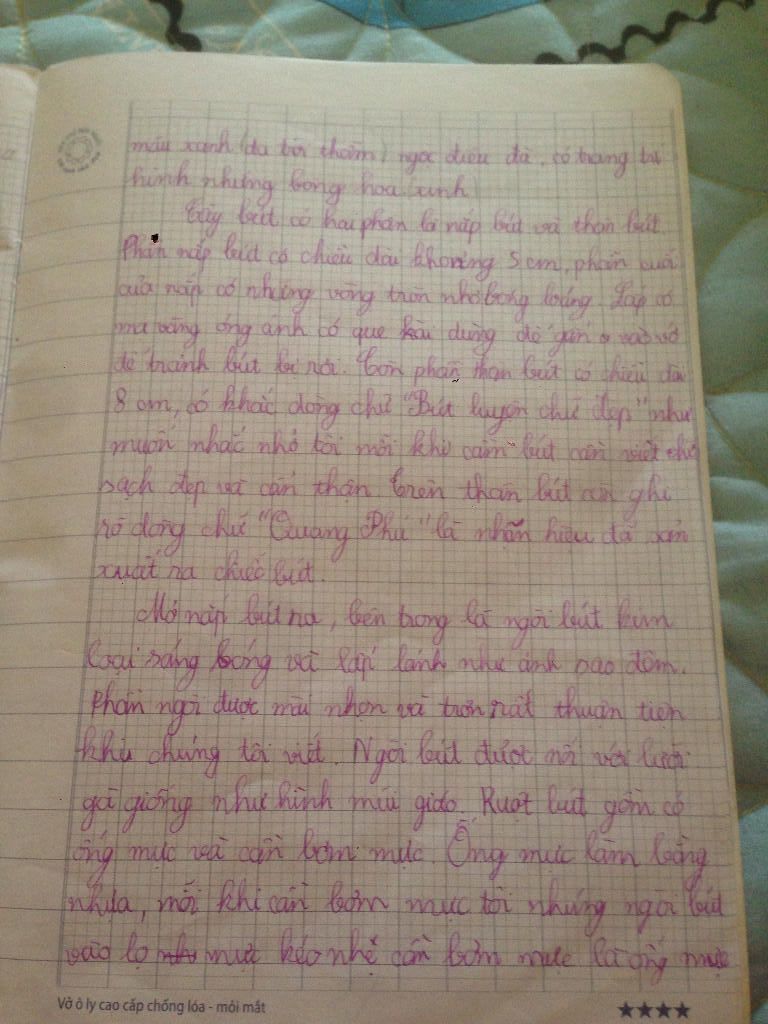 màu xanh (da trời thẫm) ngọc điệu đà, có trang trí
hình những bông hoa xinh
Cây bút có hai phần là nắp bút và thân bút.
Phần nắp bút có chiều dài khoảng 5 cm, phần cuối
của nắp có những vòng tròn nhỏ bóng loáng. Lắp có
mạ vàng óng ánh có que cài dùng để gắn vào vở
để tránh bút bị rơi. Còn phần thân bút có chiều dài
8 cm, có khắc dòng chữ "Bút luyện chữ đẹp" như
muốn nhắc nhở tôi mỗi khi cầm bút cần viết chữ
sạch đẹp và cẩn thận. Trên thân bút còn ghi
rõ dòng chữ "Quang Phú" là nhãn hiệu đã sản
xuất ra chiếc bút.
Mở nắp bút ra, bên trong là ngòi bút kim
loại sáng bóng và lấp lánh như ánh sao đêm.
Phần ngòi được mài nhọn và trơn rất thuận tiện
khi chúng tôi viết. Ngòi bút được nối với lưỡi
gà giống như hình mũi giáo. Ruột bút gồm có
ống mực và cần bơm mực. Ống mực làm bằng
nhựa, mỗi khi cần bơm mực tôi nhúng ngòi bút
vào lọ mực kéo nhẹ cần bơm mực là ống mực
Vở ô ly cao cấp chống lóa - mỏi mắt